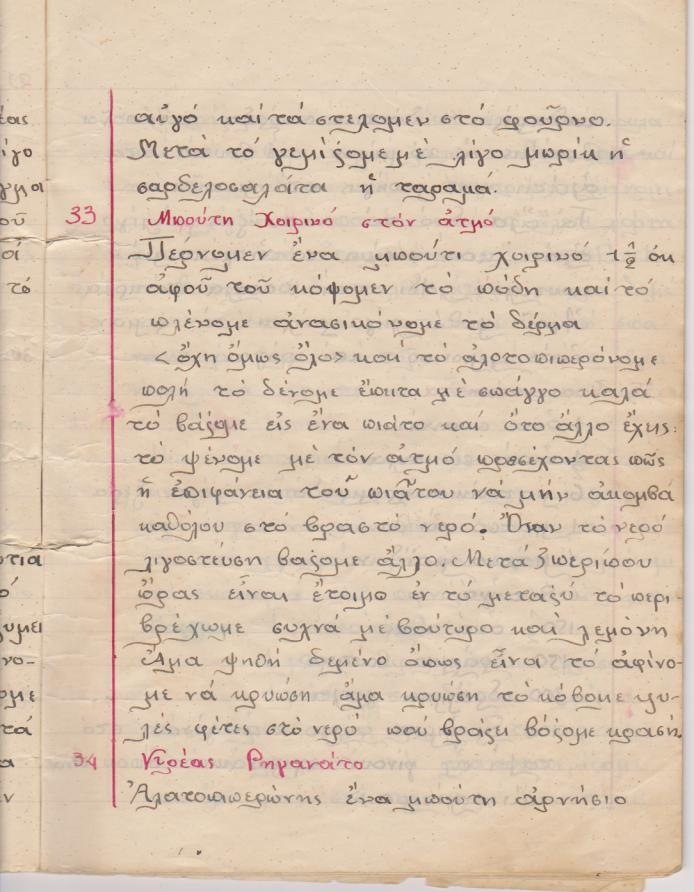 αὐγό καί τά στελομεν στό φοῦρνο.
Μετά τό γεμίζομε μέ λίγο μωρίκ ἤ
σαρδελοσαλάτα ἤ ταραμά.
33 Μπούτη Χοιρινό στόν ἀτμό
Πέρνομεν ἕνα μπούτι χοιρινό 1 1/2 ὀκ
ἀφοῦ τοῦ κόψομεν τό πόδη καί τό
πλένομε ἀνασικόνομε τό δέρμα
<ὄχη ὅμως ὅλο> καί τό ἀλοτοπιπερόνομε
πολή τό δένομε ἔπιτα μέ σπάγγο καλά
τό βάζομε εἰς ἕνα πιάτο καί ὅτο ἄλλο ἔχεις:
τό ψένομε μέ τόν ἀτμό προσέχοντας πῶς
ἤ ἐπιφάνεια τοῦ πιάτου νά μήν ἀκομβᾶ
καθόλου στό βραστό νερό. Ὅταν τό νερό
λιγοστεύση βάζομε ἄλλο. Μετά 3 περίπου
ὥρας εἶναι ἕτοιμο ἐν τό μεταξύ τό περι-
βρέχωμε συχνά μέ βούτυρο καί λεμόνη
Ἅμα ψηθῆ δεμένο ὅπως εἶναι τό ἀφίνο-
με νά κρυώση ἅμα κρυώση τό κόβομε κυ-
λές φέτες στό νερό πού βράζει βάζομε κρασή.
34 Κρέας Ρηγανάτο
Ἀλατοπιπερώνης ἕνα μπούτη ἀρνήσιο
έας
ίγο
οῦ
τό
τια
ό
ζυμει
νο-
ομε
τά
α
ν